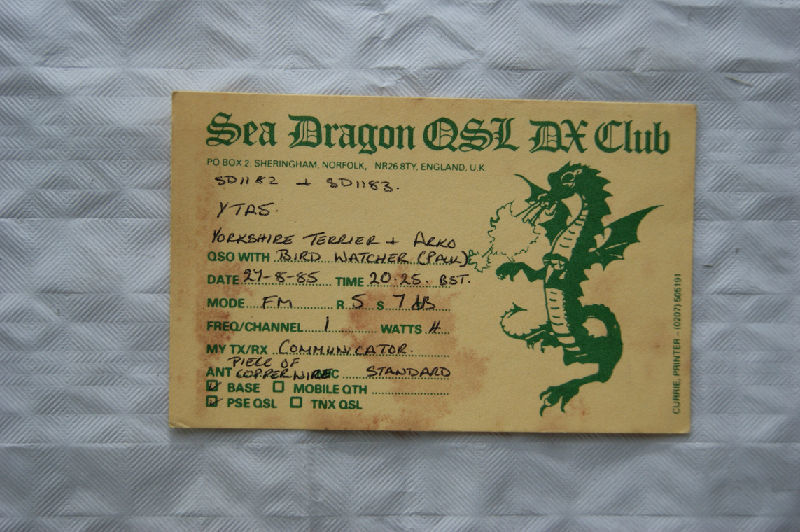 Sea Dragon QSL DX Club
PO BOX 2, SHERINGHAM, NORFOLK, NR26 8TY, ENGLAND, U.K
SD1182 + SD1183.
YTAS.
YORKSHIRE TERRIER + ARKO
QSO WITH BIRD WATCHER (PAUL)
DATE 27-8-85 TIME 20.25. BST.
MODE FM R 5 S 7 dB
FREQ/CHANNEL 1 WATTS 4
MY TX/RX COMMUNICATOR
PIECE OF
ANT COPPER WIRE STANDARD
BASE MOBILE QTH
PSE QSL TNX QSL
CURRIE, PRINTER - (0207) 505191